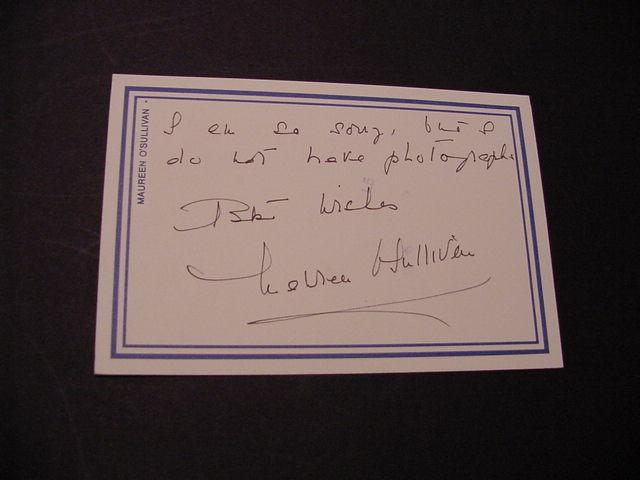 MAUREEN O'SULLIVAN •
I am so sorry, but I
do not have photographs
Best Wishes
Maureen O'Sullivan